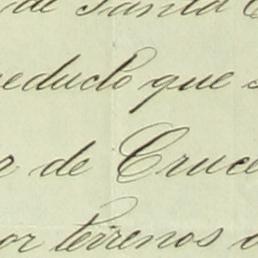 de Santa
reducto que s
r de Cruce
or terrenos d